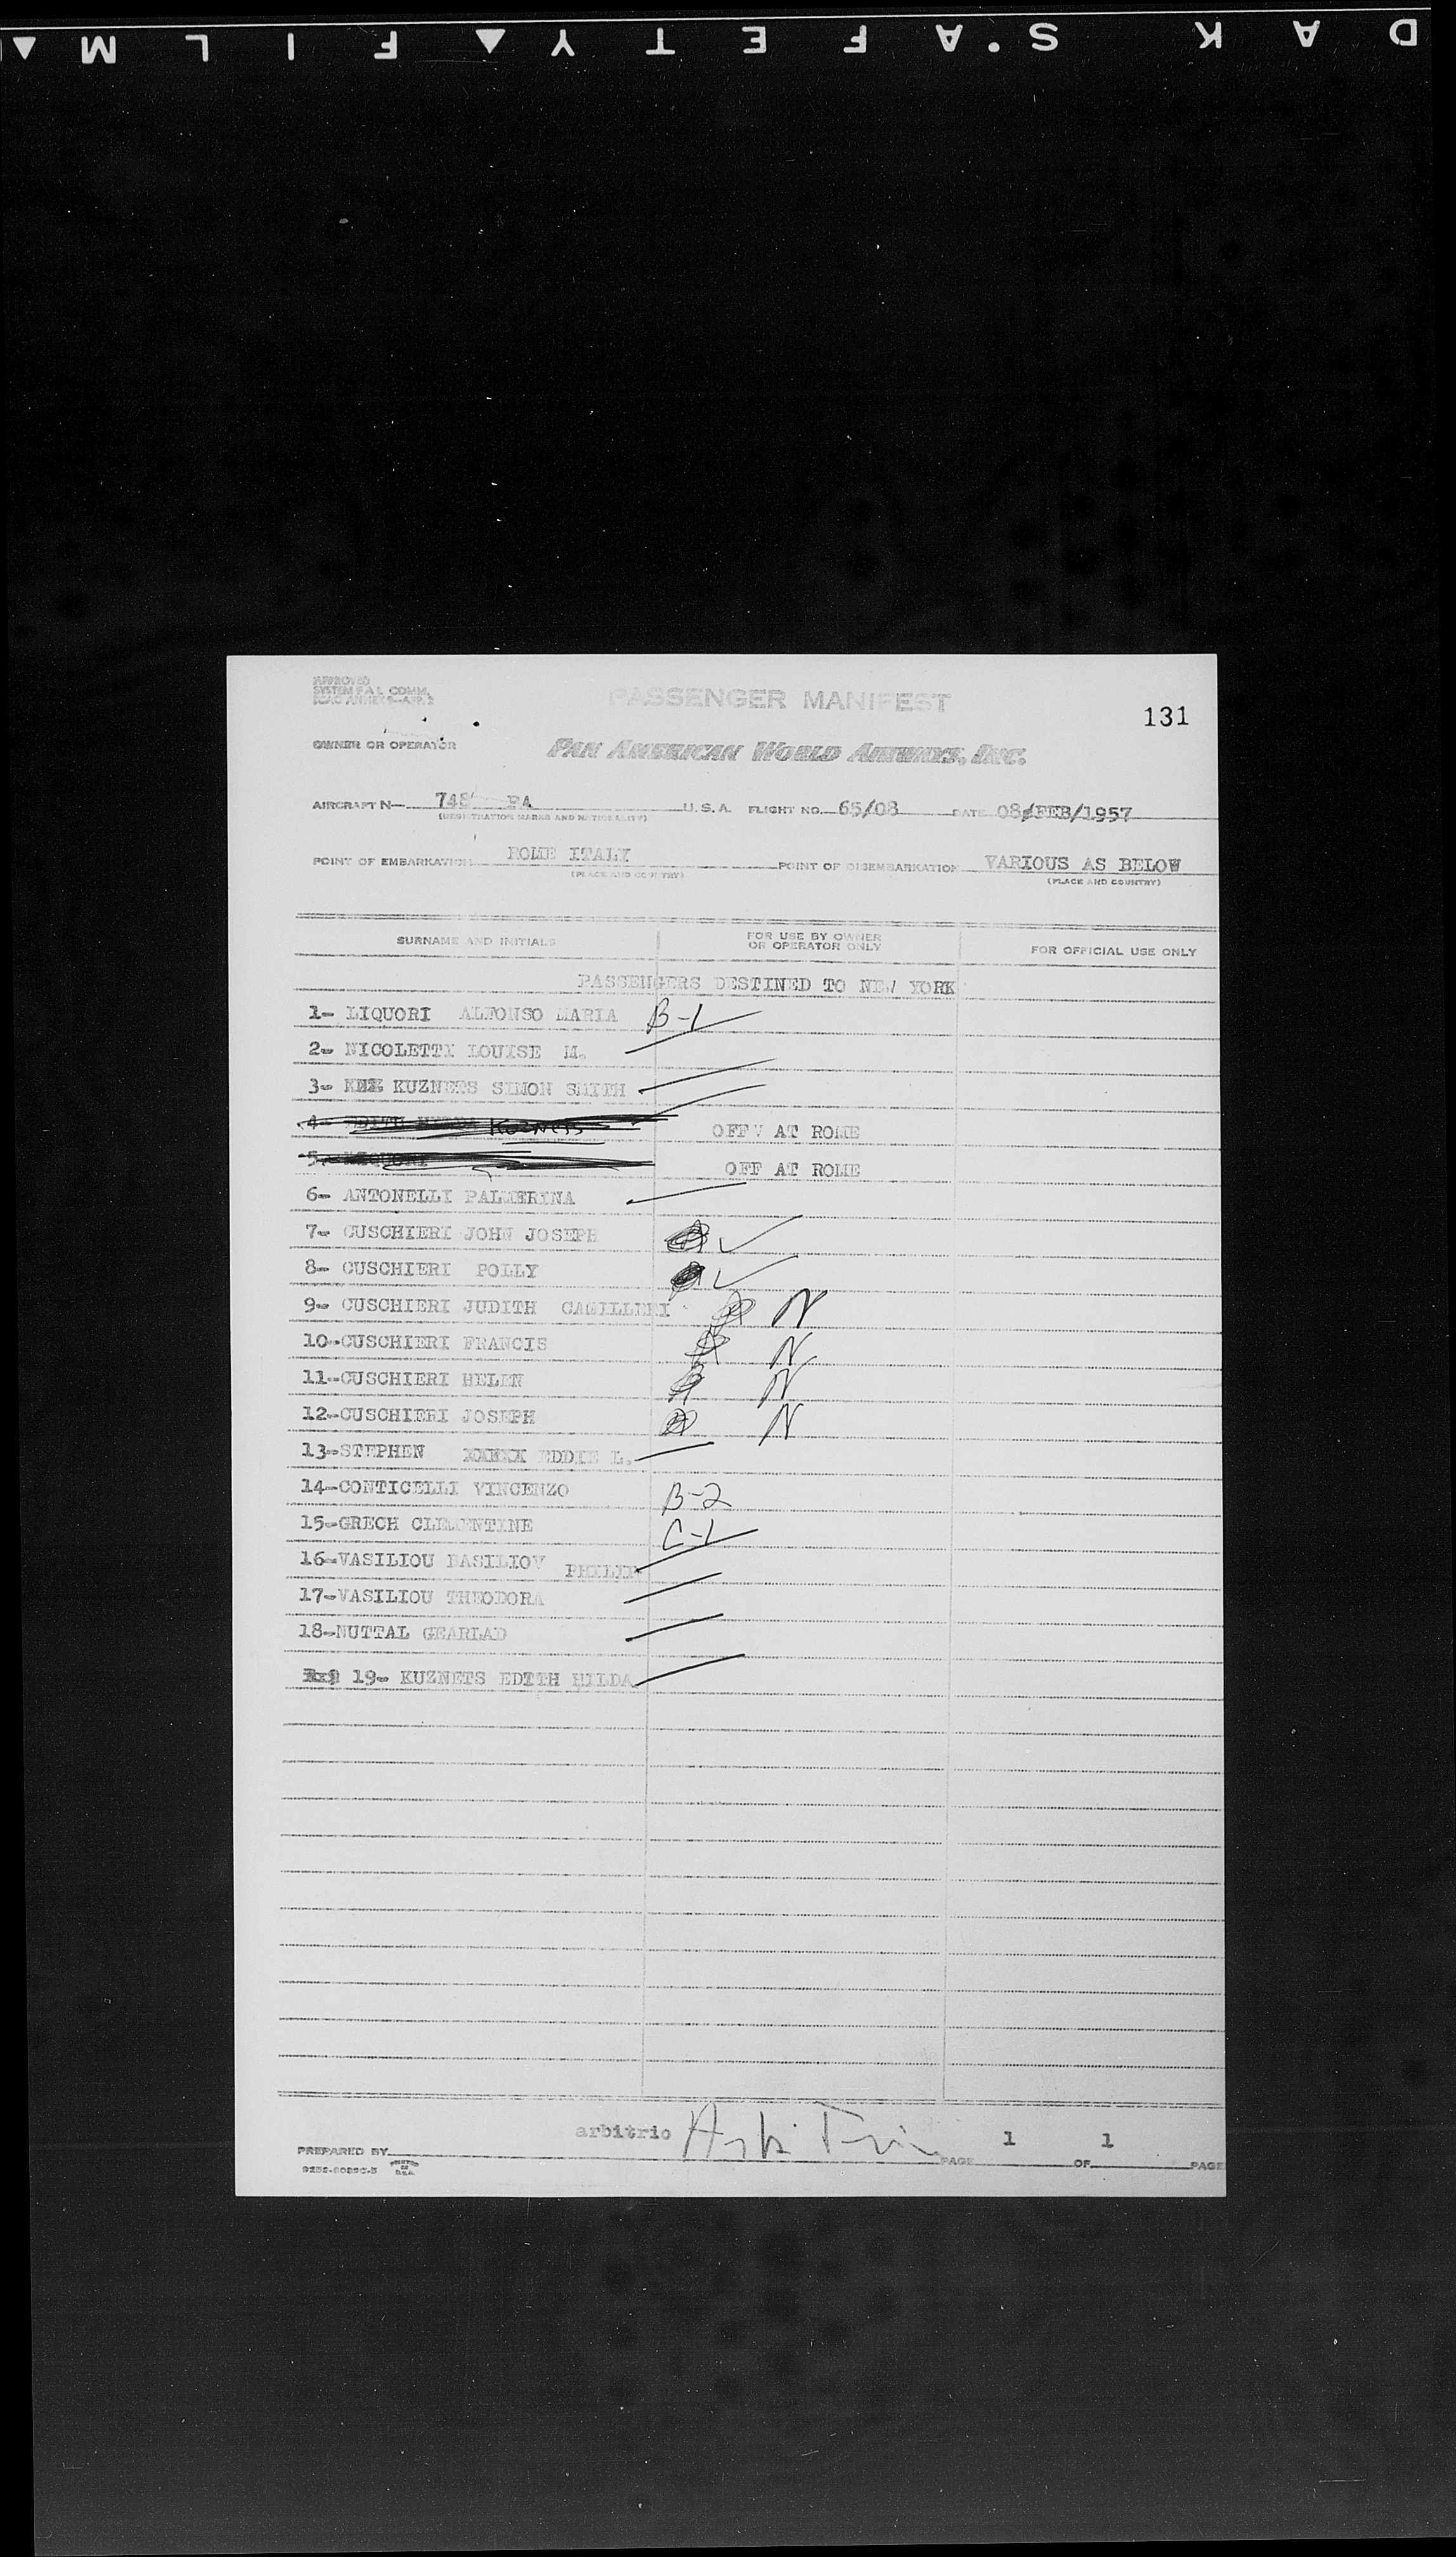 D A K S . A F E T Y ▲ F I L M ▲
APPROVED
SYSTEM F A L COMM.
ICAO ANNEX 9—APP. 2
PASSENGER MANIFEST
131
OWNER OR OPERATOR PAN AMERICAN WORLD AIRWAYS, INC.
AIRCRAFT N— 748 PA U. S. A. FLIGHT NO. 65/08 DATE 08/FEB/1957
(REGISTRATION MARKS AND NATIONALITY)
POINT OF EMBARKATION ROME ITALY POINT OF DISEMBARKATION VARIOUS AS BELOW
(PLACE AND COUNTRY) (PLACE AND COUNTRY)
SURNAME AND INITIALS FOR USE BY OWNER OR OPERATOR ONLY FOR OFFICIAL USE ONLY
PASSENGERS DESTINED TO NEW YORK
1- LIQUORI ALFONSO MARIA B-1
2- NICOLETTI LOUISE M.
3- KUZNETS SIMON SMITH
4- EDITH HILDA Kuznets OFF AT ROME
5- LIQUORI OFF AT ROME
6- ANTONELLI PALMERINA
7- CUSCHIERI JOHN JOSEPH ✓
8- CUSCHIERI POLLY ✓
9- CUSCHIERI JUDITH CAMILLERI N
10-CUSCHIERI FRANCIS N
11-CUSCHIERI HELEN N
12-CUSCHIERI JOSEPH N
13-STEPHEN EDDIE L.
14-CONTICELLI VINCENZO B-2
15-GRECH CLEMENTINE C-1
16-VASILIOU BASILIOV PHILIP
17-VASILIOU THEODORA
18-NUTTAL GEARLAD
19- KUZNETS EDTTH HILDA
PREPARED BY arbitrio PAGE 1 OF 1 PAGE
PRINTED IN U.S.A.